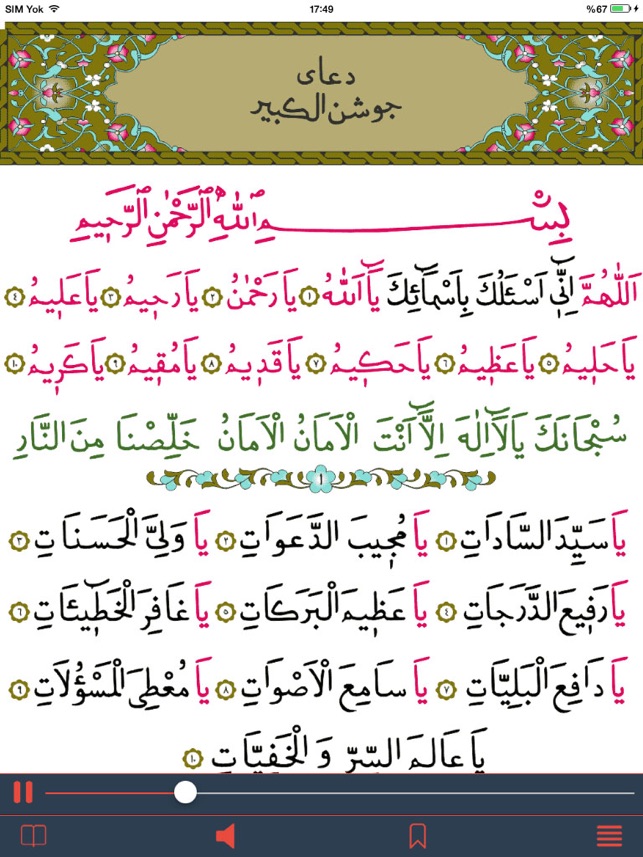 SIM Yok 17:49 %67
دعاى
جوشن الكبير
بِسْمِ اللهِ الرَّحْمٰنِ الرَّحِيمِ
اَللّٰهُمَّ اِنِّٓى اَسْئَلُكَ بِاَسْمَٓائِكَ يَٓا اَللهُ ١ يَا رَحْمٰنُ ٢ يَا رَحِيمُ ٣ يَا عَلِيمُ ٤
يَا حَلِيمُ ٥ يَا عَظِيمُ ٦ يَا حَكِيمُ ٧ يَا قَدِيمُ ٨ يَا مُقِيمُ ٩ يَا كَرِيمُ ١٠
سُبْحَانَكَ يَا لَٓا اِلٰهَ اِلَّٓا اَنْتَ الْاَمَانُ الْاَمَانُ خَلِّصْنَا مِنَ النَّارِ
١
يَا سَيِّدَ السَّادَاتِ ١ يَا مُجِيبَ الدَّعَوَاتِ ٢ يَا وَلِىَّ الْحَسَنَاتِ ٣
يَا رَفِيعَ الدَّرَجَاتِ ٤ يَا عَظِيمَ الْبَرَكَاتِ ٥ يَا غَافِرَ الْخَطِٓيئَاتِ ٦
يَا دَافِعَ الْبَلِيَّاتِ ٧ يَا سَامِعَ الْاَصْوَاتِ ٨ يَا مُعْطِىَ الْمَسْؤُلَاتِ ٩
يَا عَالِمَ السِّرِّ وَ الْخَفِيَّاتِ ١٠